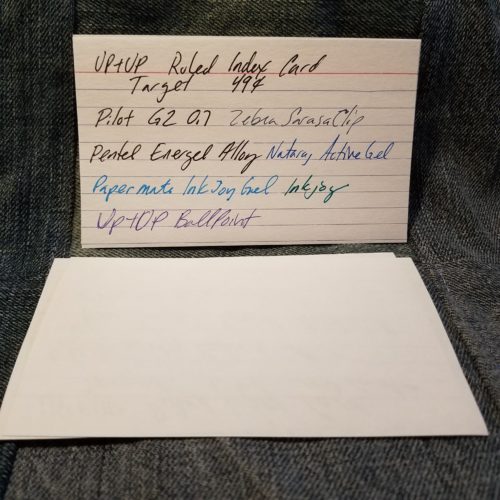 UP+UP Ruled Index Card
Target 49¢
Pilot G2 0.7 Zebra Sarasa Clip
Pentel Energel Alloy Nataraj Active Gel
Papermate InkJoy Gel Inkjoy
Up+UP BallPoint